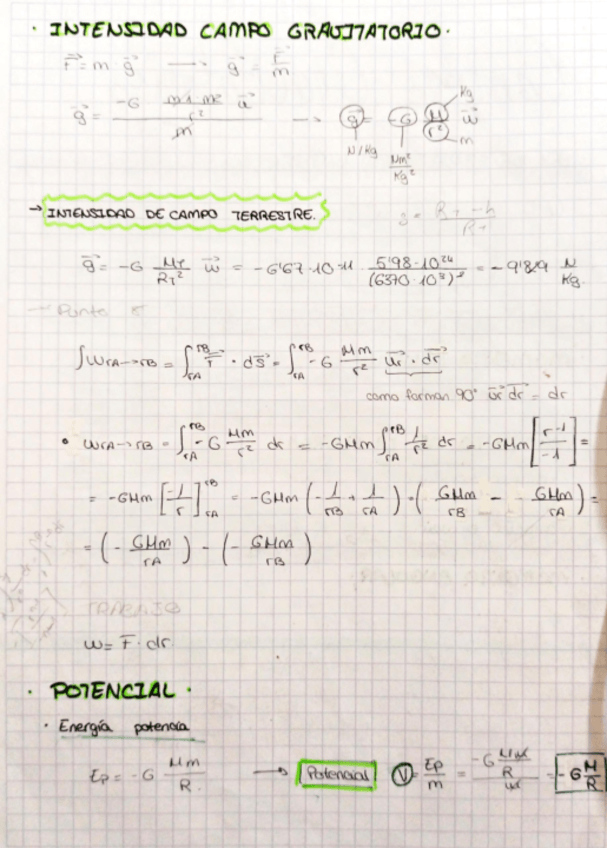 · INTENSIDAD CAMPO GRAVITATORIO ·
F⃗ = m · g⃗ → g⃗ = F⃗/m
g⃗ = (-G (m1 m2/r²) u⃗)/m → g⃗ = -G (M/r²) u⃗
Kg
m
N/Kg
Nm²/Kg²
→ INTENSIDAD DE CAMPO TERRESTRE.
g⃗ = -G (M_T/R_T²) u⃗ = -6'67 · 10⁻¹¹ · (5'98 · 10²⁴)/(6370 · 10³)² = -9'8 N/Kg.
Punto
∫W rA→rB = ∫_rA^rB F⃗ · ds⃗ = ∫_rA^rB -G (Mm/r²) u⃗r · dr⃗
como forman 90° u⃗r dr⃗ = dr
• W rA→rB = ∫_rA^rB -G (Mm/r²) dr = -GMm ∫_rA^rB (1/r²) dr = -GMm [r⁻¹/-1] =
= -GMm [-1/r]_rA^rB = -GMm (-1/rB + 1/rA) = (GMm/rB - GMm/rA) =
= (-GMm/rA) - (-GMm/rB)
TRABAJO
W = F⃗ · dr.
· POTENCIAL ·
· Energía potencia
Ep = -G (Mm/R.) → Potencial V = Ep/m = (-G (Mm/R))/m = -G M/R